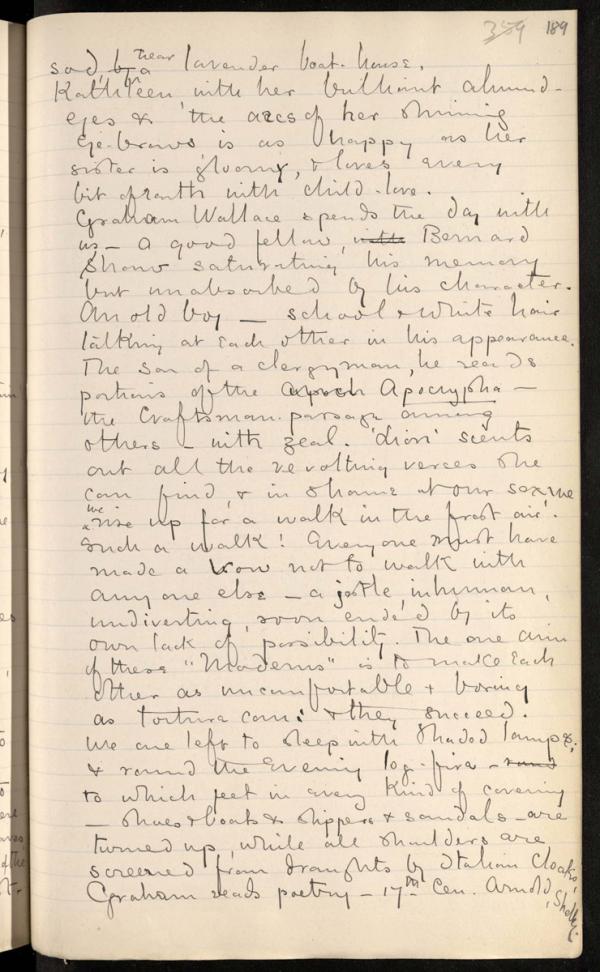 359 189
sad, by a near lavender boat-house.
Kathleen with her brilliant almond-
eyes & the arcs of her shining
eye-brows is as happy as her
sister is gloomy, & loves every
bit of earth with child-love.
Graham Wallace spends the day with
us – a good fellow, with Bernard
Shaw saturating his memory
but unabsorbed by his character.
An old boy – school & white hair
talking at each other in his appearance.
The son of a clergyman, he reads
portions of the Apocrypha –
the Craftsman-passage among
others – with zeal. 'Lion' scents
out all the revolting verses she
can find, & in shame at our sex we
we rise up for a walk in the frost air.
Such a walk! Everyone must have
made a vow not to walk with
anyone else – a jostle, inhuman,
undiverting, soon ended by its
own lack of possibility. The one aim
of these "Moderns" is to make each
other as uncomfortable & boring
as torture can: & they succeed.
We are left to sleep with shaded lamps;
& round the Evening log-fire – round
to which feet in every kind of covering
– shoes & boots & slippers & sandals – are
turned up, while all shoulders are
screened from draughts by Italian cloaks,
Graham reads poetry – 17th Cen. Arnold, Shelley